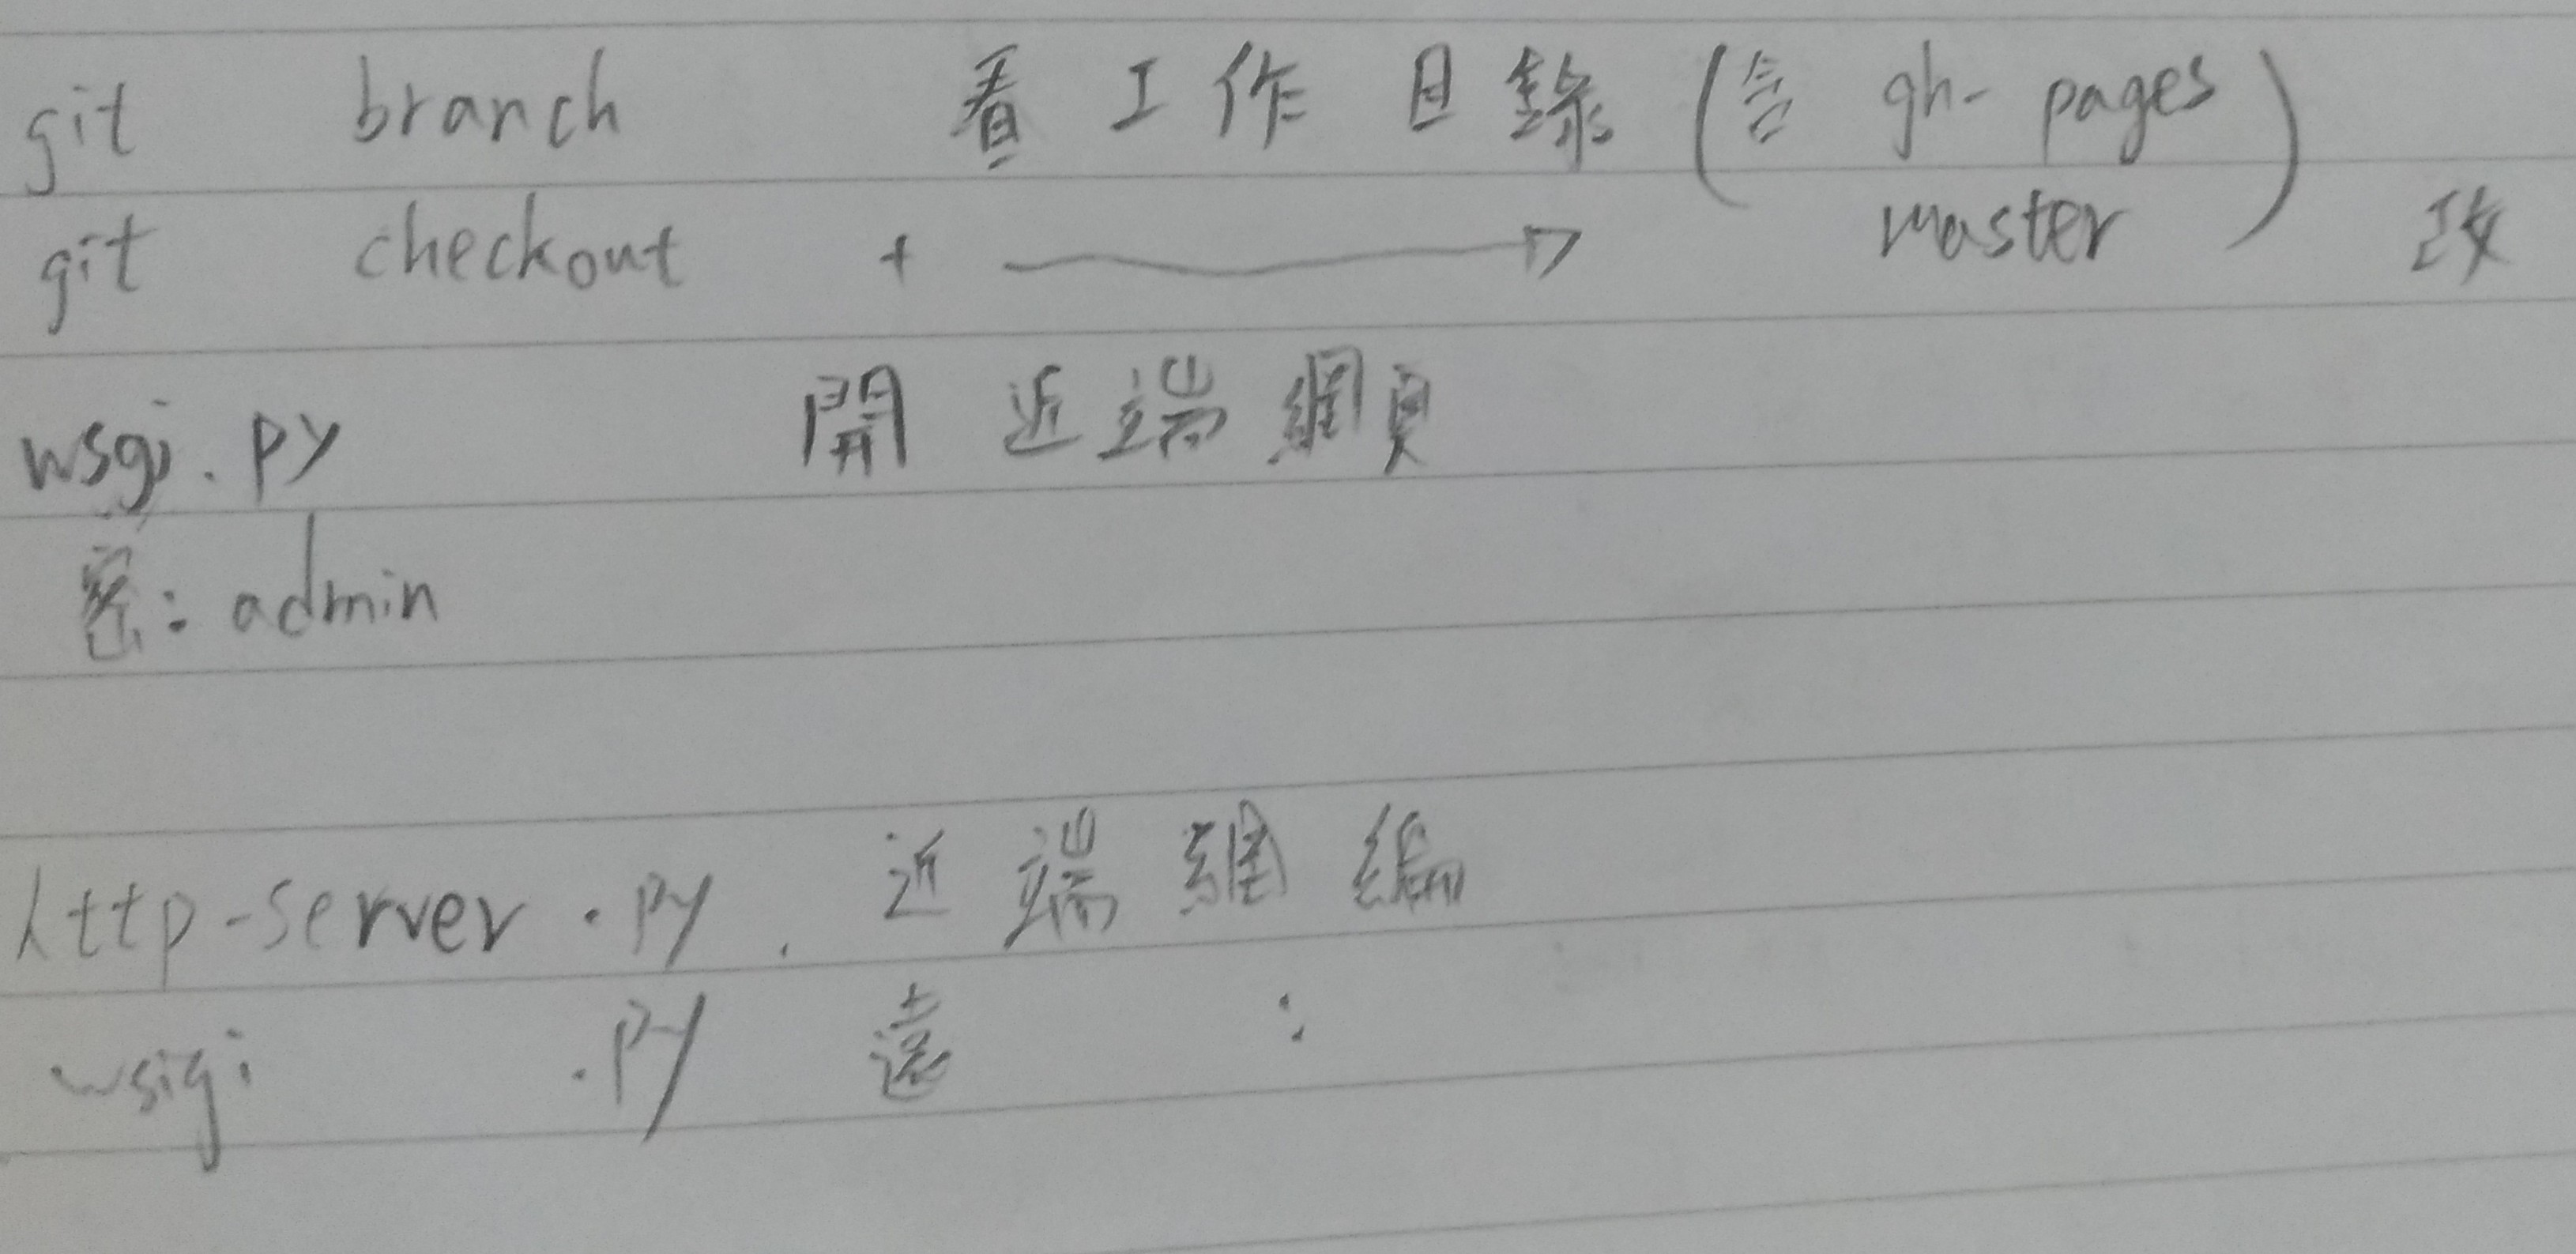 git branch 看工作目錄(含 gh-pages
git checkout + → master) 改
wsgi.py 開近端網頁
密:admin
http-server.py. 近端網編
wsigi .py 遠 :